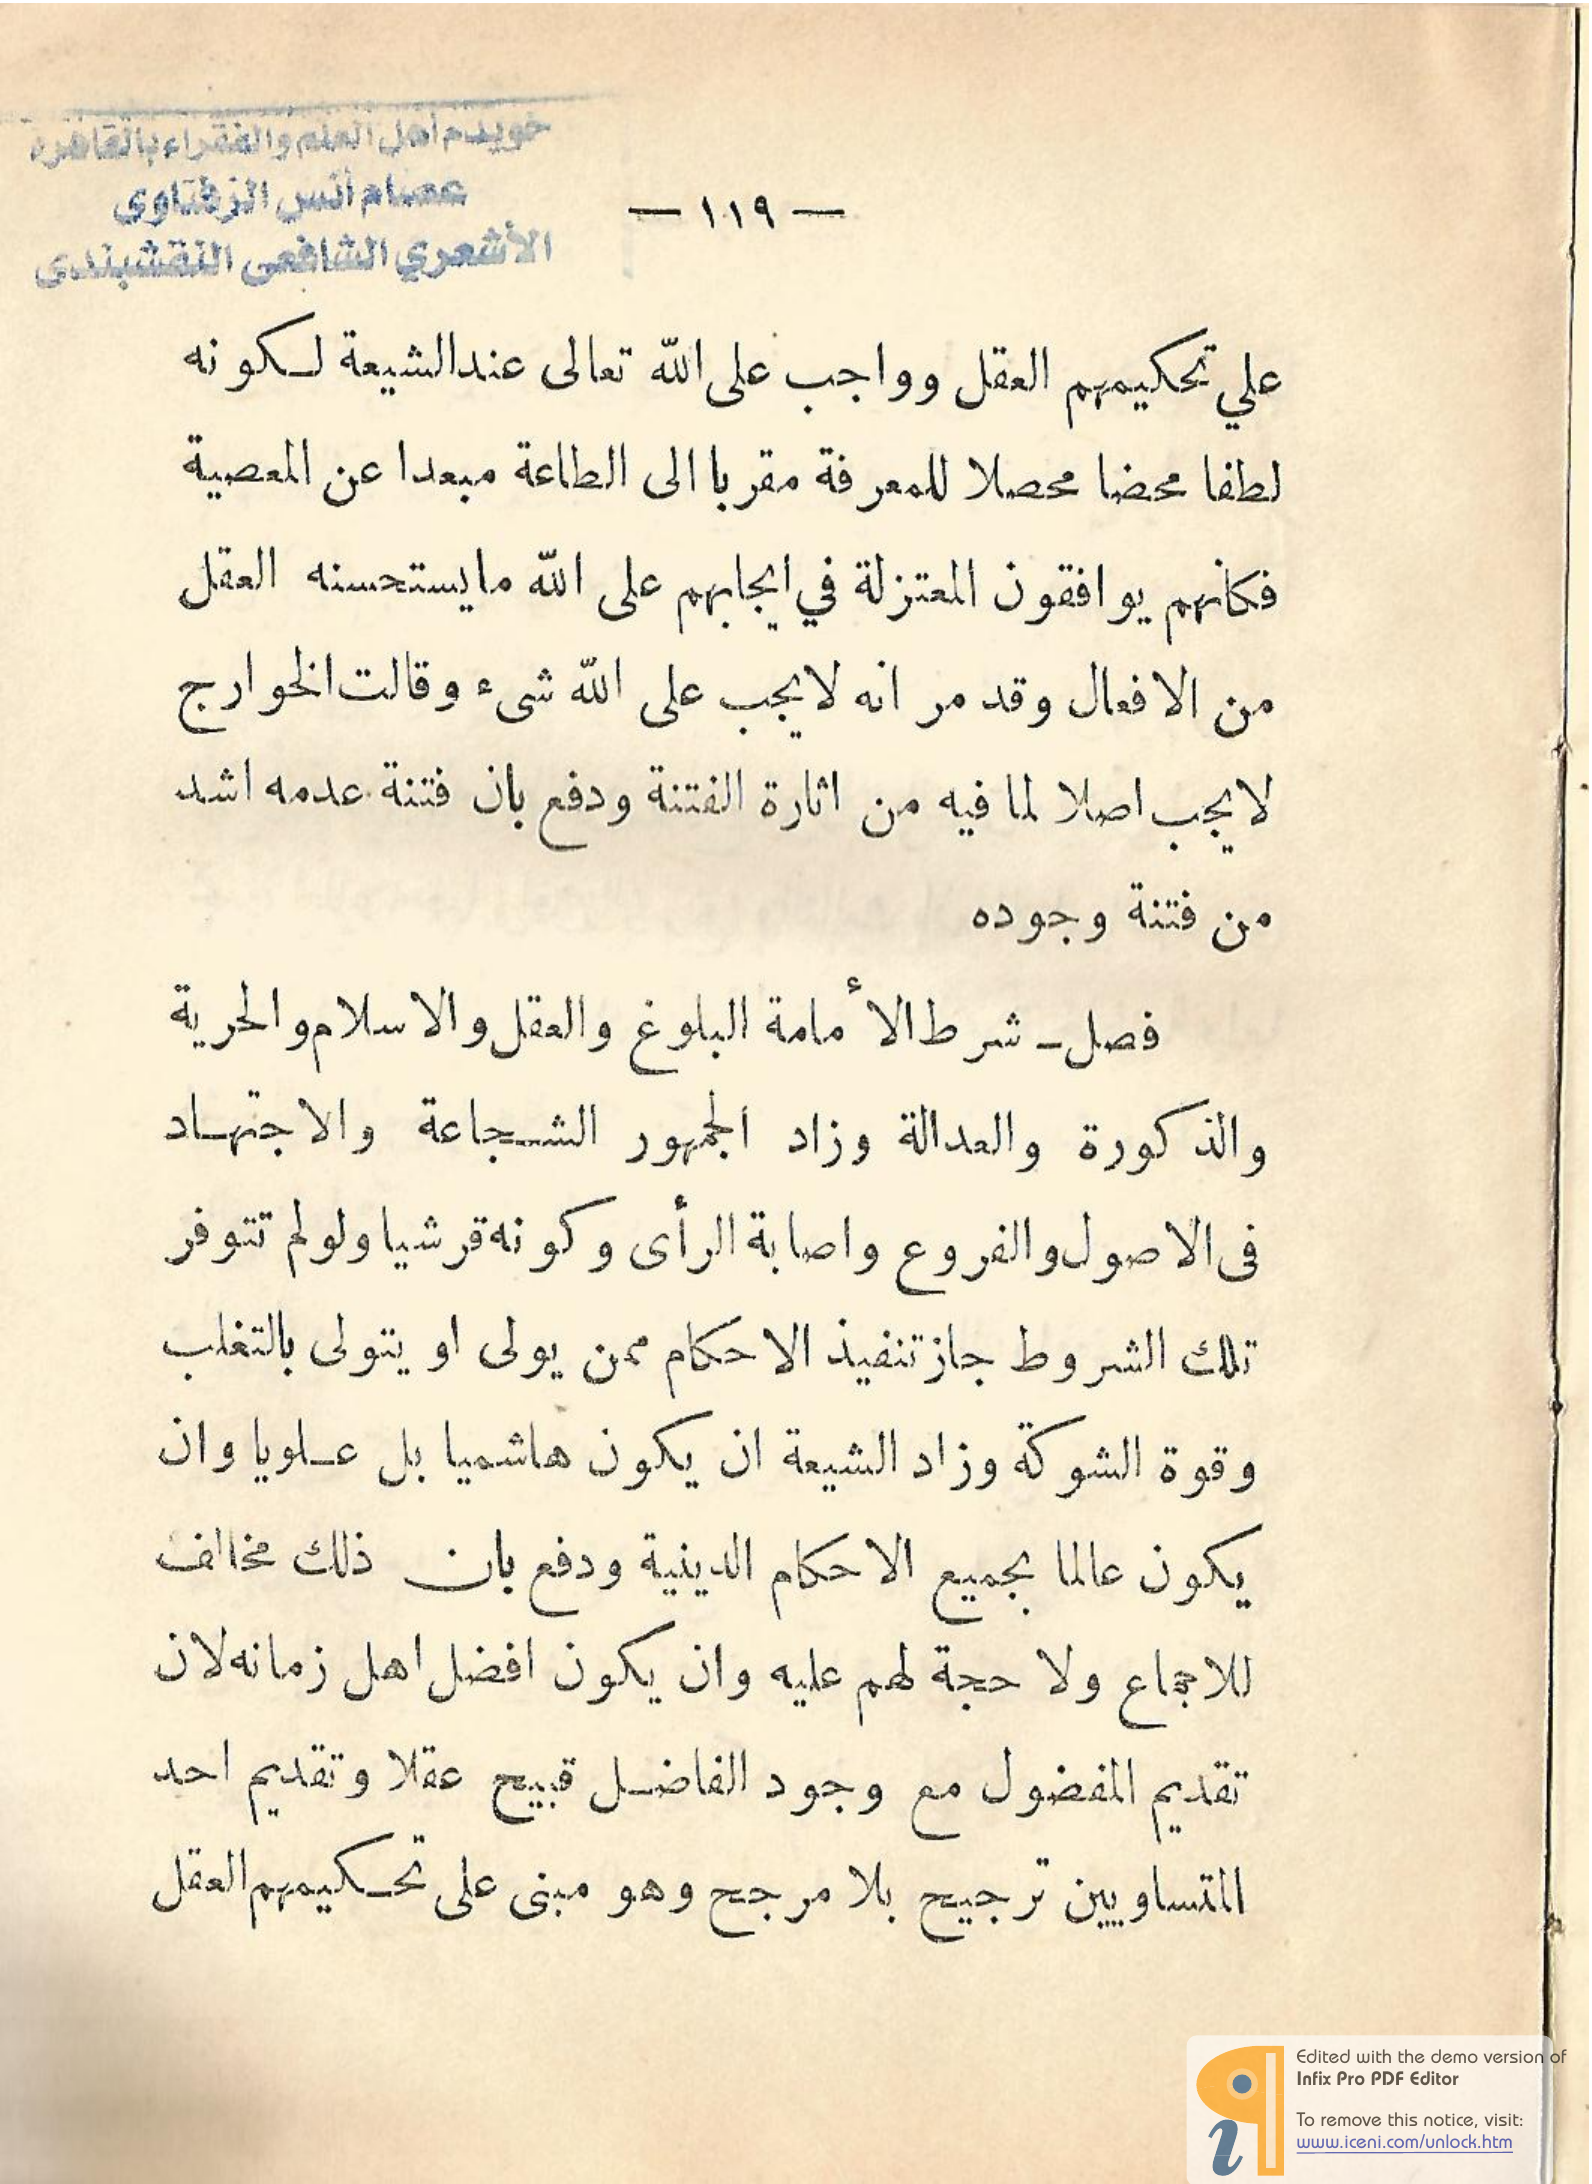 خويدم أهل العلم والفقراء بالقاهرة
عصام أنس الزفتاوى
الأشعري الشافعى النقشبندى
— ١١٩ —
علي تحكيمهم العقل وواجب على الله تعالى عند الشيعة لـكونه
لطفا محضا محصلا للمعرفة مقربا الى الطاعة مبعدا عن المعصية
فكأنهم يوافقون المعتزلة في ايجابهم على الله مايستحسنه العقل
من الافعال وقد مر انه لايجب على الله شىء وقالت الخوارج
لايجب اصلا لما فيه من اثارة الفتنة ودفع بان فتنة عدمه اشد
من فتنة وجوده
فصل ـ شرط الأمامة البلوغ والعقل والاسلام والحرية
والذكورة والعدالة وزاد الجمهور الشـجاعة والاجتهـاد
فى الاصول والفروع واصابة الرأى وكونه قرشيا ولو لم تتوفر
تلك الشروط جاز تنفيذ الاحكام ممن يولى او يتولى بالتغلب
وقوة الشوكة وزاد الشيعة ان يكون هاشميا بل عـلويا وان
يكون عالما بجميع الاحكام الدينية ودفع بان ذلك مخالف
للاجماع ولا حجة لهم عليه وان يكون افضل اهل زمانه لان
تقديم المفضول مع وجود الفاضـل قبيح عقلا وتقديم احد
المتساويين ترجيح بلا مرجح وهو مبنى على تحـكيمهم العقل
Edited with the demo version of
Infix Pro PDF Editor
To remove this notice, visit:
www.iceni.com/unlock.htm